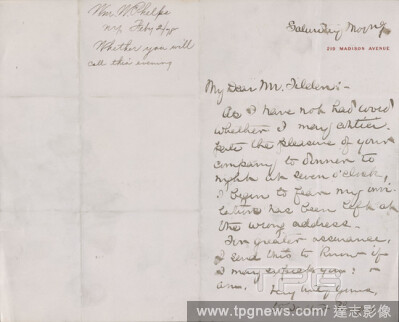 Wm W. Phelps
N.Y. Feby
Whether you will
call this evening
Saturday Morng
210 MADISON AVENUE.
My Dear Mr. Tilden:-
As I have not had word
whether I may antici-
pate the pleasure of your
company to dinner to
night at seven o'clock,
I begin to fear my invi-
tation has been left at
the wrong address.
For greater assurance,
I send this to know if
I may expect you: &
am,
Very truly yours,
TPG
www.tpgnews.com/達志影像